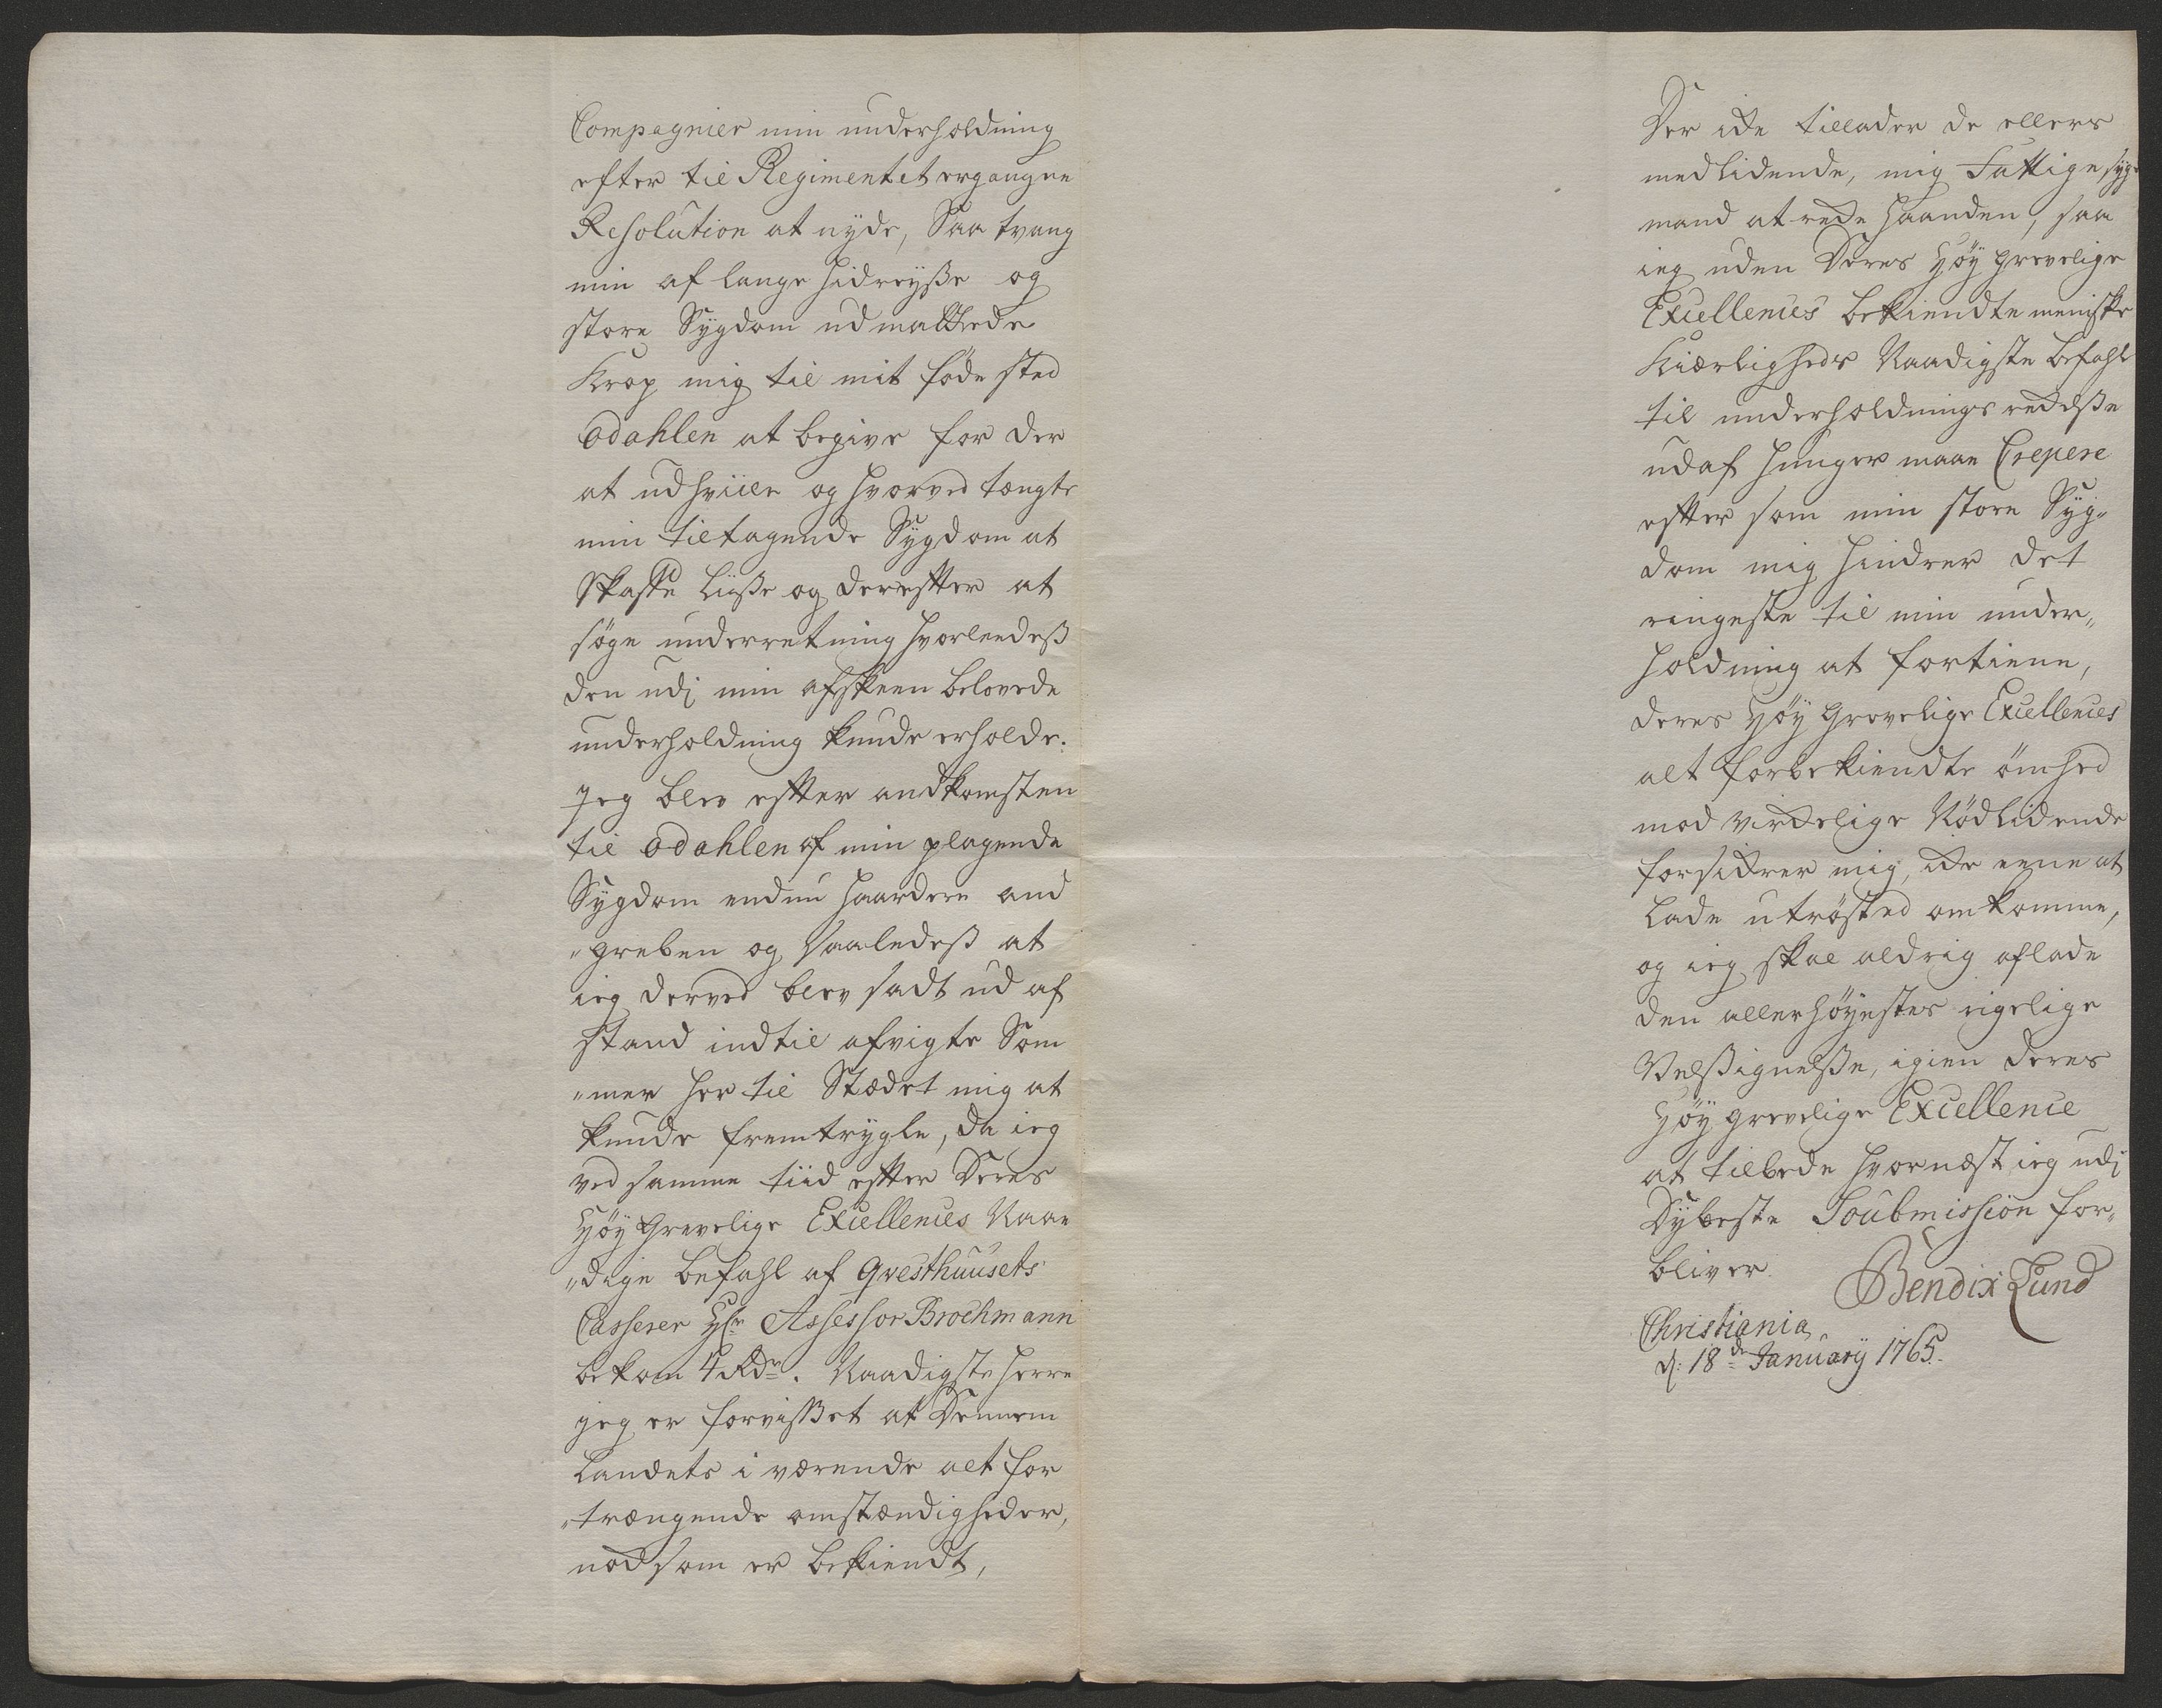 Compagnier min underholdning
efter til Regimentet ergangne
Resolution at nyde, Saa tvang
min af lange hidreyße og
store Sygdom udmattede
Krop mig til mit føde sted
Odahlen at begive for der
at udhviile og hvorved tengte
min tiltagende Sygdom at
skaffe liiße og derefter at
søge underretning hvorleedeß
den udj min afskeen belovede
underholdning kunde erholde.
Jeg blev efter andkomsten
til Odahlen af min plagende
Sygdom endnu haardere and
„greben og saaledeß at
ieg derved blev sadt ud af
stand indtil afvigte Som
„mer her til Stædet mig at
kunde fremtrygle, da ieg
ved samme tiid efter Deres
Høy Grevelige Excellences Naae
„dige befahl af Qvesthuusets
Casserer Hr Assessor Brochmann
bekom 4 Rdr. Naadigste Herre
jeg er forvißet at Dennem
Landets i værende alt for
„trængende omstændigheder,
nocksom er bekiendt,
Der icke tillader de ellers
medlidende, mig Fattige syge
mand at recke haanden, saa
ieg uden Deres Høy Grevelige
Excellences bekiendte meniske
Kiærligheds Naadigste befahl
til underholdnings reddße
udaf hunger maae Crepere
efter som min store Syg„
dom mig hindrer det
ringeste til min under„
holdning at fortiene,
deres Høy Grevelige Excellences
alt forbekiendte ömhed
mod virckelige Nødlidende
forsickrer mig, icke eene at
lade utrøsted omkomme,
og ieg skal aldrig aflade
den allerhøyestes rigelige
Velßignelße, igien deres
Høy grevelige Excellence
at tilbede hvornæst ieg udj
Dybeste Soubmission for„
bliver
Bendix Lund
Christiania
d: 18de January 1765.